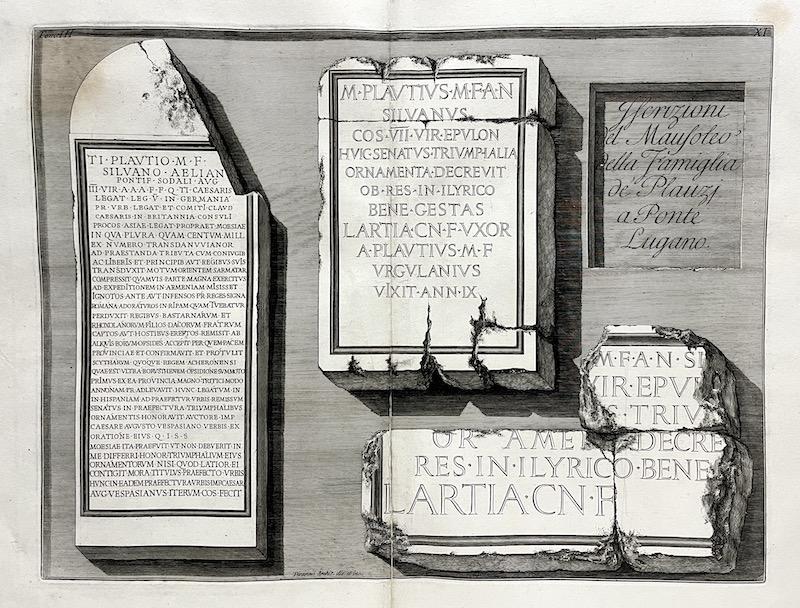 XI
TI · PLAVTIO · M · F ·
SILVANO · AELIAN
PONTIF · SODALI · AVG
III · VIR · A · A · A · F · F · Q · TI · CAESARIS
LEGAT · LEG · V · IN · GERMANIA
PR · VRB · LEGAT · ET · COMITI · CLAVD
CAESARIS · IN · BRITANNIA · CONSVLI
PROCOS · ASIAE · LEGAT · PROPRAET · MOESIAE
IN · QVA · PLVRA · QVAM · CENTVM · MILL
EX · NVMERO · TRANSDANVVIANOR
AD · PRAESTANDA · TRIBVTA · CVM · CONIVGIB
AC · LIBERIS · ET · PRINCIPIB · AVT · REGIBVS · SVIS
TRANSDVXIT · MOTVM · ORIENTEM · SARMATAR
COMPRESSIT · QVAMVIS · PARTE · MAGNA · EXERCITVS
AD · EXPEDITIONEM · IN · ARMENIAM · MISISSET
IGNOTOS · ANTE · AVT · INFENSOS · P · R · REGES · SIGNA
ROMANA · ADORATVROS · IN · RIPAM · QVAM · TVEBATVR
PERDVXIT · REGIBVS · BASTARNARVM · ET
RHOXOLANORVM · FILIOS · DACORVM · FRATRVM
CAPTOS · AVT · HOSTIBVS · EREPTOS · REMISIT · AB
ALIQVIS · EORVM · OPSIDES · ACCEPIT · PER · QVEM · PACEM
PROVINCIAE · ET · CONFIRMAVIT · ET · PROTVLIT
SCYTHARVM · QVOQVE · REGEM · A · CHERONENSI
QVAE · EST · VLTRA · BORVSTHENEM · OPSIDIONE · SVMMOTO
PRIMVS · EX · EA · PROVINCIA · MAGNO · TRITICI · MODO
ANNONAM · P · R · ADLEVAVIT · HVNC · LEGATVM · IN
IN · HISPANIAM · AD · PRAEFECTVR · VRBIS · REMISSVM
SENATVS · IN · PRAEFECTVRA · TRIVMPHALIBVS
ORNAMENTIS · HONORAVIT · AVCTORE · IMP
CAESARE · AVGVSTO · VESPASIANO · VERBIS · EX
ORATIONE · EIVS · Q · I · S · S
MOESIAE · ITA · PRAEFVIT · VT · NON · DEBVERIT · IN
ME · DIFFERRI · HONOR · TRIVMPHALIVM · EIVS
ORNAMENTORVM · NISI · QVOD · LATIOR · EI
CONTIGIT · MORA · TITVLVS · PRAEFECTO · VRBIS
HVNC · IN · EADEM · PRAEFECTVRA · VRBIS · IMP · CAESAR
AVG · VESPASIANVS · ITERVM · COS · FECIT
M · PLAVTIVS · M · F · A · N
SILVANVS
COS · VII · VIR · EPVLON
HVIC · SENATVS · TRIVMPHALIA
ORNAMENTA · DECREVIT
OB · RES · IN · ILYRICO
BENE · GESTAS
LARTIA · CN · F · VXOR
A · PLAVTIVS · M · F
VRGVLANIVS
VIXIT · ANN · IX
Iscrizioni
del Mausoleo
della Famiglia
de' Plauzj
a Ponte
Lugano.
M · F · A · N · SI
VIR · EPV
TRIV
OR AME DECRE
RES · IN · ILYRICO · BENE
LARTIA · CN · F